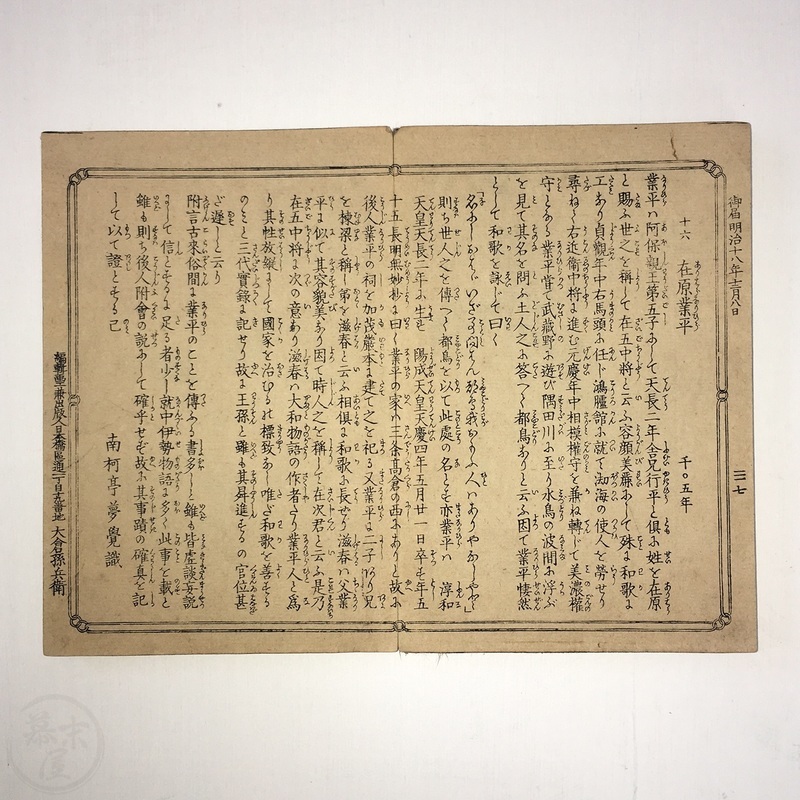 御届明治十八年十二月八日
三ノ七
十六 在原業平 千〇五年
業平ハ阿保親王第五子にして天長二年舎兄行平と俱に姓を在原
と賜ふ世之を稱して在五中將と云ふ容顔美麗にして殊に和歌に
工あり貞觀年中右馬頭に任じ鴻臚館に就て渤海の使人を勞せり
尋ねて右近衛中將に進む元慶年中相模權守を兼ね轉じて美濃權
守とある業平嘗て武蔵野に遊び隅田川に至り水鳥の波間に浮ぶ
を見て其名を問ふ土人之に答へて都鳥ありと云ふ因て業平悽然
として和歌を詠じて曰く
「名にしおはゞいざこと問はん都鳥我おもふ人ハありやなしやと」
則ち世人之を傳へて都鳥を以て此處の名とす亦業平ハ 淳和
天皇天長二年に生れ 陽成天皇天慶四年五月廿一日卒す年五
十五長明無妙抄に曰く業平の家ハ三条高倉の西にありと故に
後人業平の祠を加茂巖本に建て之を祀る又業平に二子あり兄
を棟梁と稱し弟を滋春と云ふ相俱に和歌に長せり滋春ハ父業
平に似て其容貌美あり因て時人之を稱して在次君と云ふ是乃
在五中將に次の意あり滋春ハ大和物語の作者たり業平人と爲
り其性放縱にして國家を治むるの標致あし唯だ和歌を善する
のミと三代實録に記せり故に王孫と雖も其昇進するの官位甚
ざ遲しと云り
附言古來俗間に業平のことを傳ふる書多しと雖も皆虚談妄説
にして信とするに足る者少し就中伊勢物語に多く此事を載と
雖も則ち後人附會の説にして確乎せず故に其事蹟の確真を記
して以て證とする已
南柯亭夢覺識
編輯畫工兼出版人日本橋區通一丁目九番地 大倉孫兵衛
幕末屋